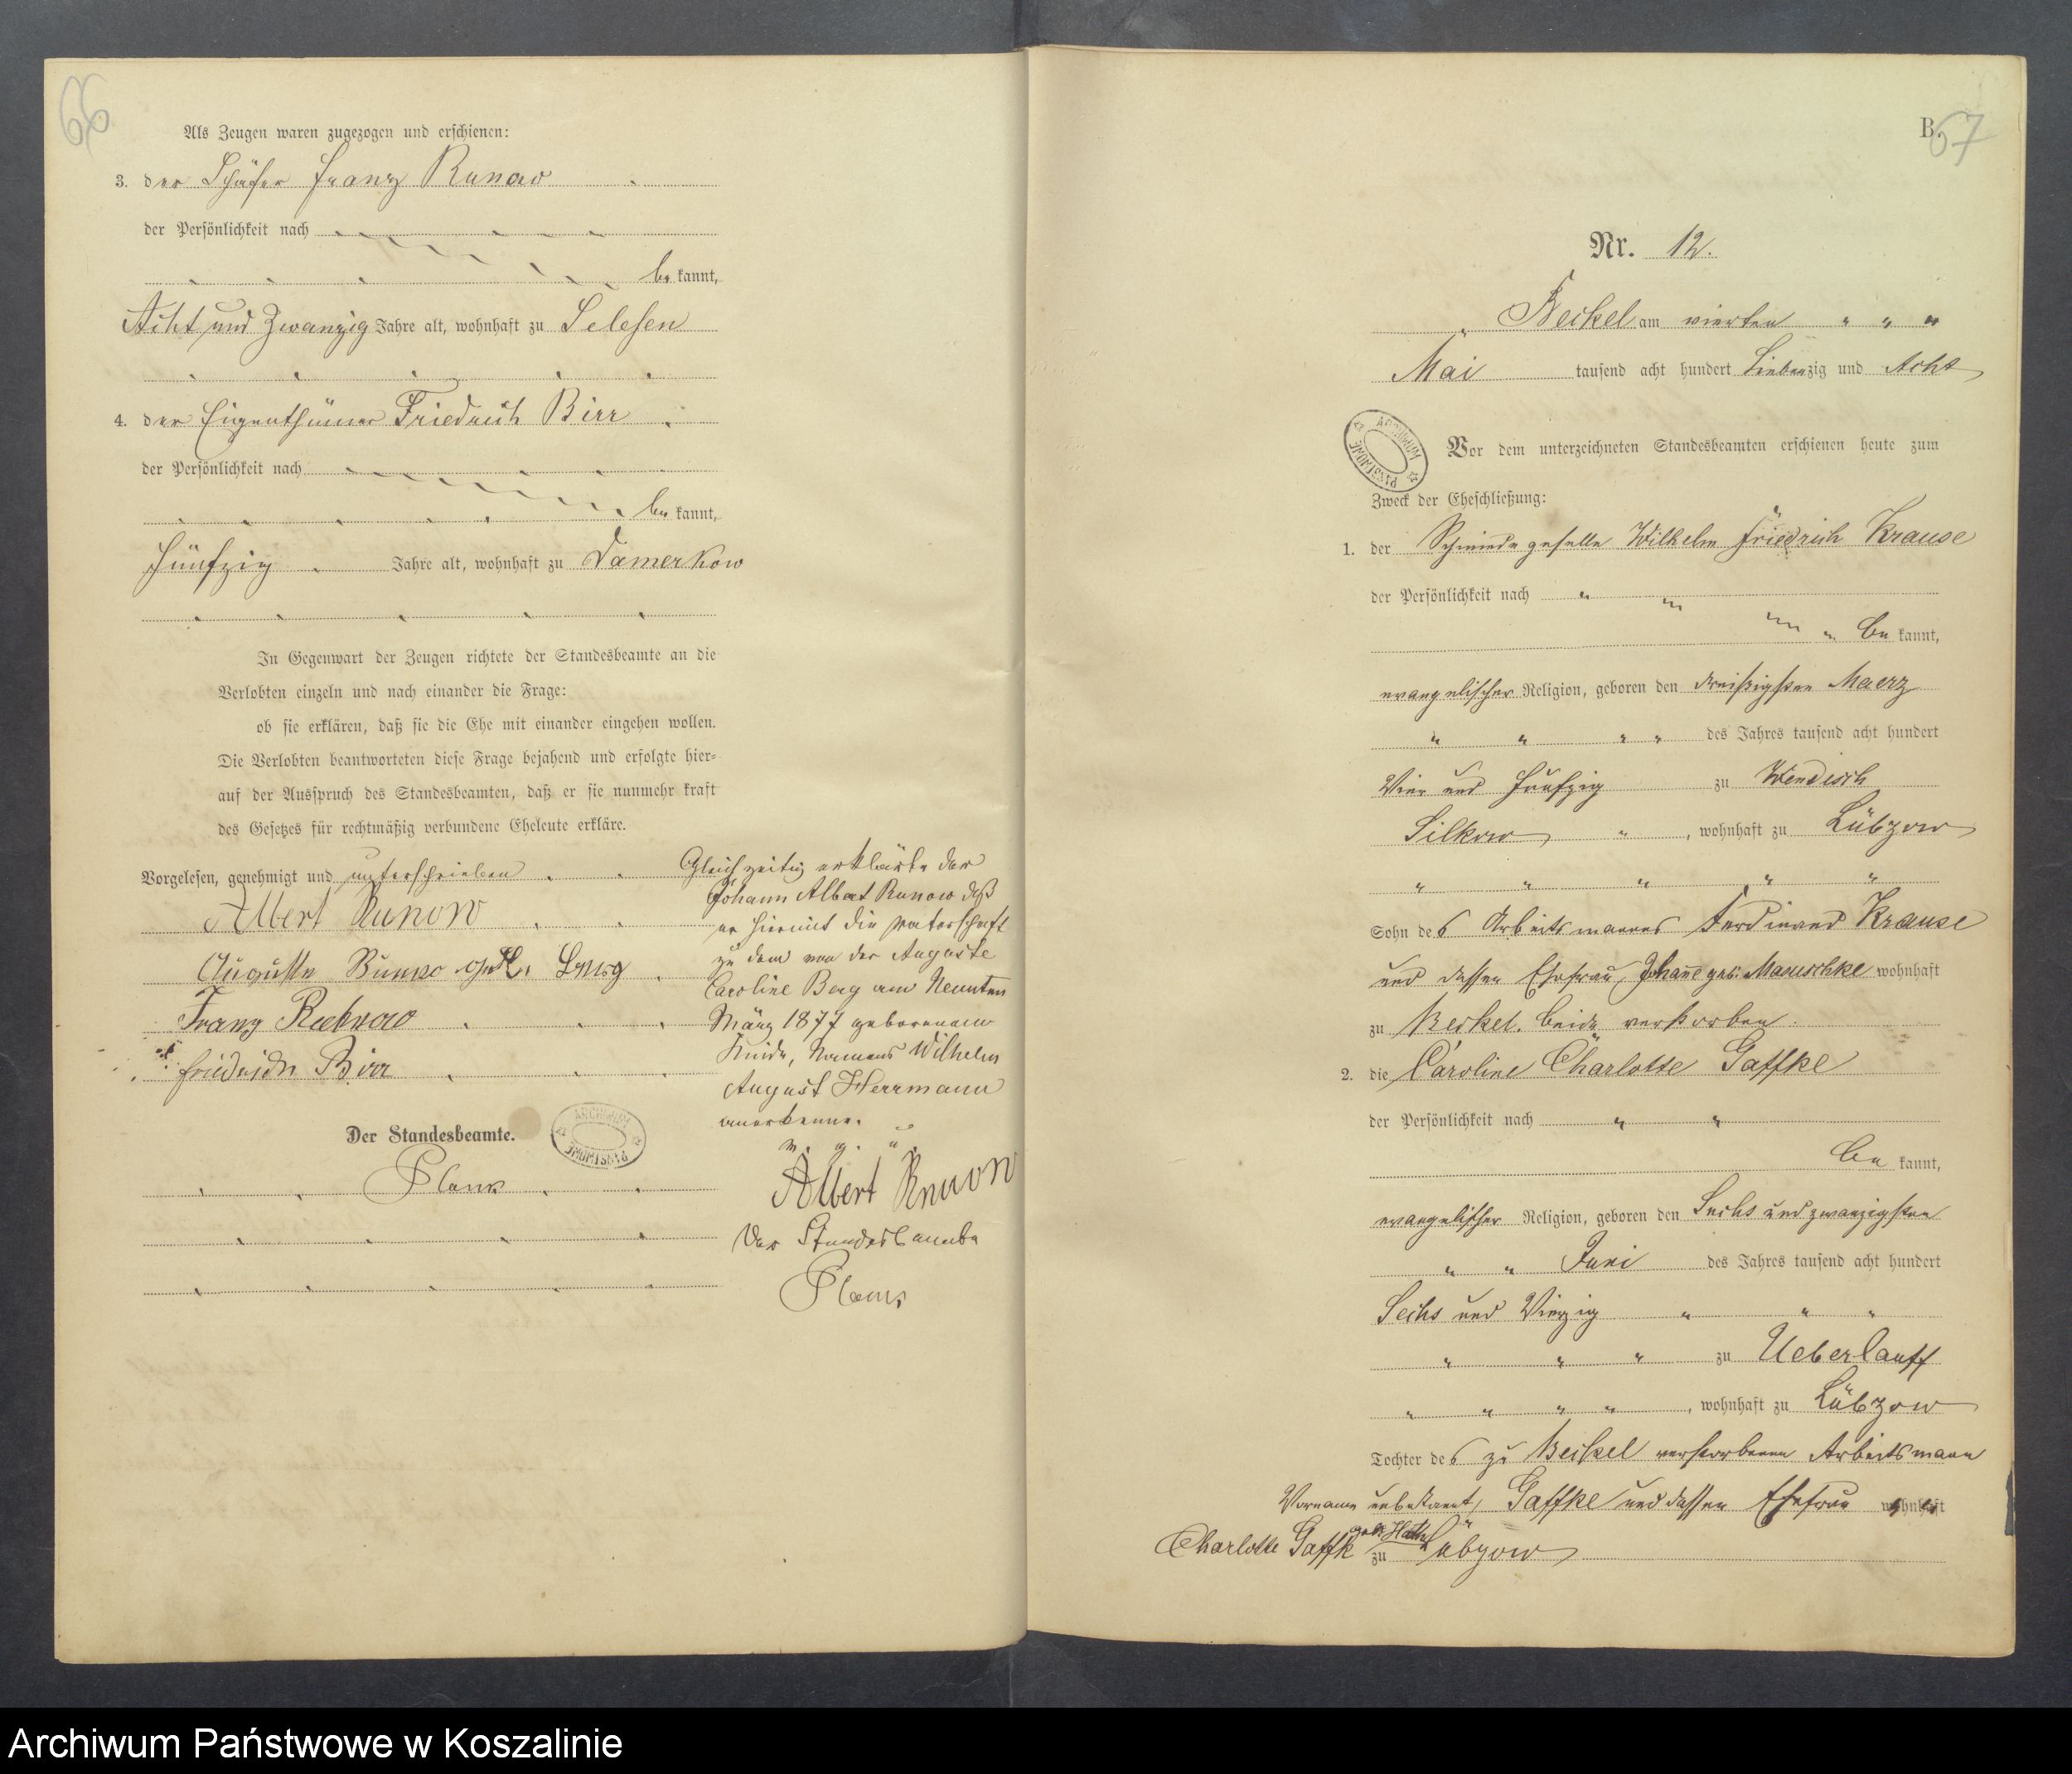 66
Als Zeugen waren zugezogen und erschienen:
3. der Schäfer Franz Runow
der Persönlichkeit nach
be kannt,
Acht und Zwanzig Jahre alt, wohnhaft zu Selesen
4. der Eigenthümer Friedrich Birr
der Persönlichkeit nach
be kannt,
Fünfzig Jahre alt, wohnhaft zu Damerkow
In Gegenwart der Zeugen richtete der Standesbeamte an die
Verlobten einzeln und nach einander die Frage:
ob sie erklären, daß sie die Ehe mit einander eingehen wollen.
Die Verlobten beantworteten diese Frage bejahend und erfolgte hier-
auf der Ausspruch des Standesbeamten, daß er sie nunmehr kraft
des Gesetzes für rechtmäßig verbundene Eheleute erkläre.
Vorgelesen, genehmigt und unterschrieben
Albert Runow
Auguste
Franz
Friedrich Birr
Der Standesbeamte.
ARCHIWUM PAŃSTWOWE
Gleichzeitig erklärte der
Johann Albert Runow daß
er hiermit die Vaterschaft
zu dem von der Auguste
Caroline Berg am Neunten
März 1877 geborenem
Kinde, Namens Wilhelm
August Herrmann
anerkenne.
v. g. u.
Albert Runow
Der Standesbeamte
B. 67
Nr. 12.
Beckel am vierten
Mai tausend acht hundert Siebenzig und Acht
ARCHIWUM PAŃSTWOWE
Vor dem unterzeichneten Standesbeamten erschienen heute zum
Zweck der Eheschließung:
1. der Schmiedegeselle Wilhelm Friedrich Krause
der Persönlichkeit nach
be kannt,
evangelischer Religion, geboren den dreißigsten Maerz
des Jahres tausend acht hundert
Vier und Fünfzig zu Wendisch
Silkow, wohnhaft zu Lübzow
Sohn des Arbeitsmannes Ferdinand Krause
und dessen Ehefrau, Johanne geb. Mauschke wohnhaft
zu Beckel. beide verstorben.
2. die Caroline Charlotte Gaffke
der Persönlichkeit nach
be kannt,
evangelischer Religion, geboren den Sechs und zwanzigsten
Juni des Jahres tausend acht hundert
Sechs und Vierzig
zu Ueberlauff
, wohnhaft zu Lübzow
Tochter des zu Beckel verstorbenen Arbeitsmann
Vorname unbekannt, Gaffke und dessen Ehefrau wohnhaft
Charlotte Gaffk geb. zu Lübzow
Archiwum Państwowe w Koszalinie